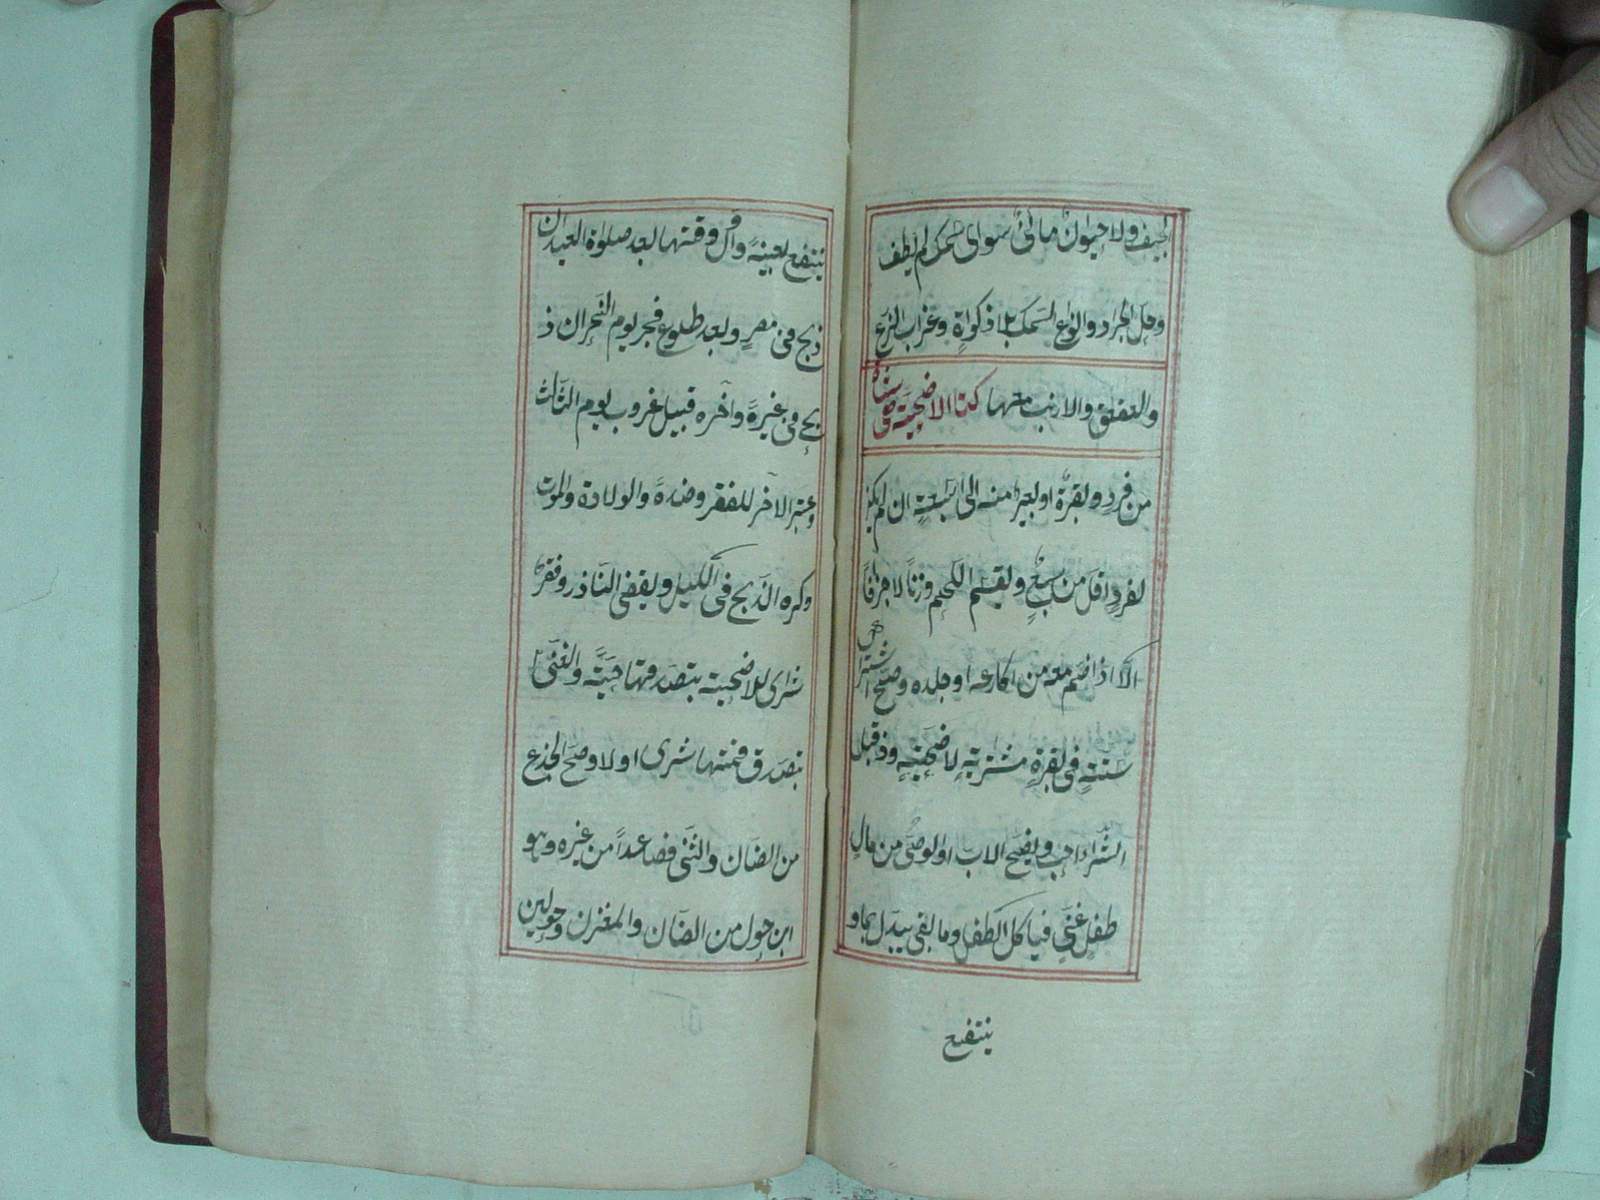 الجيف ولا حيوان مائى سوى سمك لم يطف
وحل الجراد وانواع السمك بلا ذكوة وغراب الزرع
والعقعق والارنب معها كتاب الاضحية هى شاة
من فرد وبقرة او بعير منه الى سبعة ان لم يكن
لفرد اقل من سبع ويقسم اللحم وزنا لا جزافا
الا اذا ضم معه من اكارعه او جلده وصح اشتراك
ستة فى بقرة مشترية لاضحية وذ قبل
الشراء احب ويضحى الاب او الوصى من مال
طفل غنى فياكل الطفل وما بقى يبدل بما و
ينتفع
ينتفع بعينه واول وقتها بعد صلوة العيد ان
ذبح فى مصر وبعد طلوع فجر يوم النحر ان ذ
بح فى غيره وآخره قبيل غروب يوم الثالث
وعتبر الآخر للفقر وضده والولادة والموت
وكره الذبح فى الليل ويقضى الناذر وفقير
شرى للاضحية بتصدقها حية والغنى
بتصدق قيمتها شرى او لا وصح الجذع
من الضان والثنى فصاعدا من غيره وهو
ابن حول من الضان والمعز وحولين